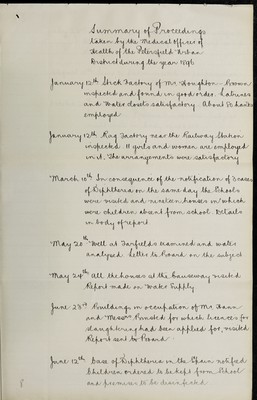 Summary of Proceedings
taken by the Medical Officer of
Health of the Petersfield Urban
District during the year 1896
January 12th Stick Factory of Mr Houghton-Brown
inspected and found in good order. Latrines
and Water closets satisfactory. About 50 hands
employed
January 12th Rag Factory near the Railway Station
inspected 11 girls and women are employed
in it. The arrangements were satisfactory
March 10th In consequence of the notification of 3 cases
of Diphtheria on the same day the Schools
were visited and nineteen houses in which
were children absent from school. Details
in body of report
May 20th Well at Fairfields examined and water
analysed. Letter to Board on the subject
May 24th All the houses at the Causeway visited
Report made on Water Supply
June 23rd Buildings in occupation of Mr
and for which licences for
slaughtering had been applied for, visited
Report sent to Board
June 12th Case of Diphtheria in the Spain notified
Children ordered to be kept from School
and premises to be disinfected